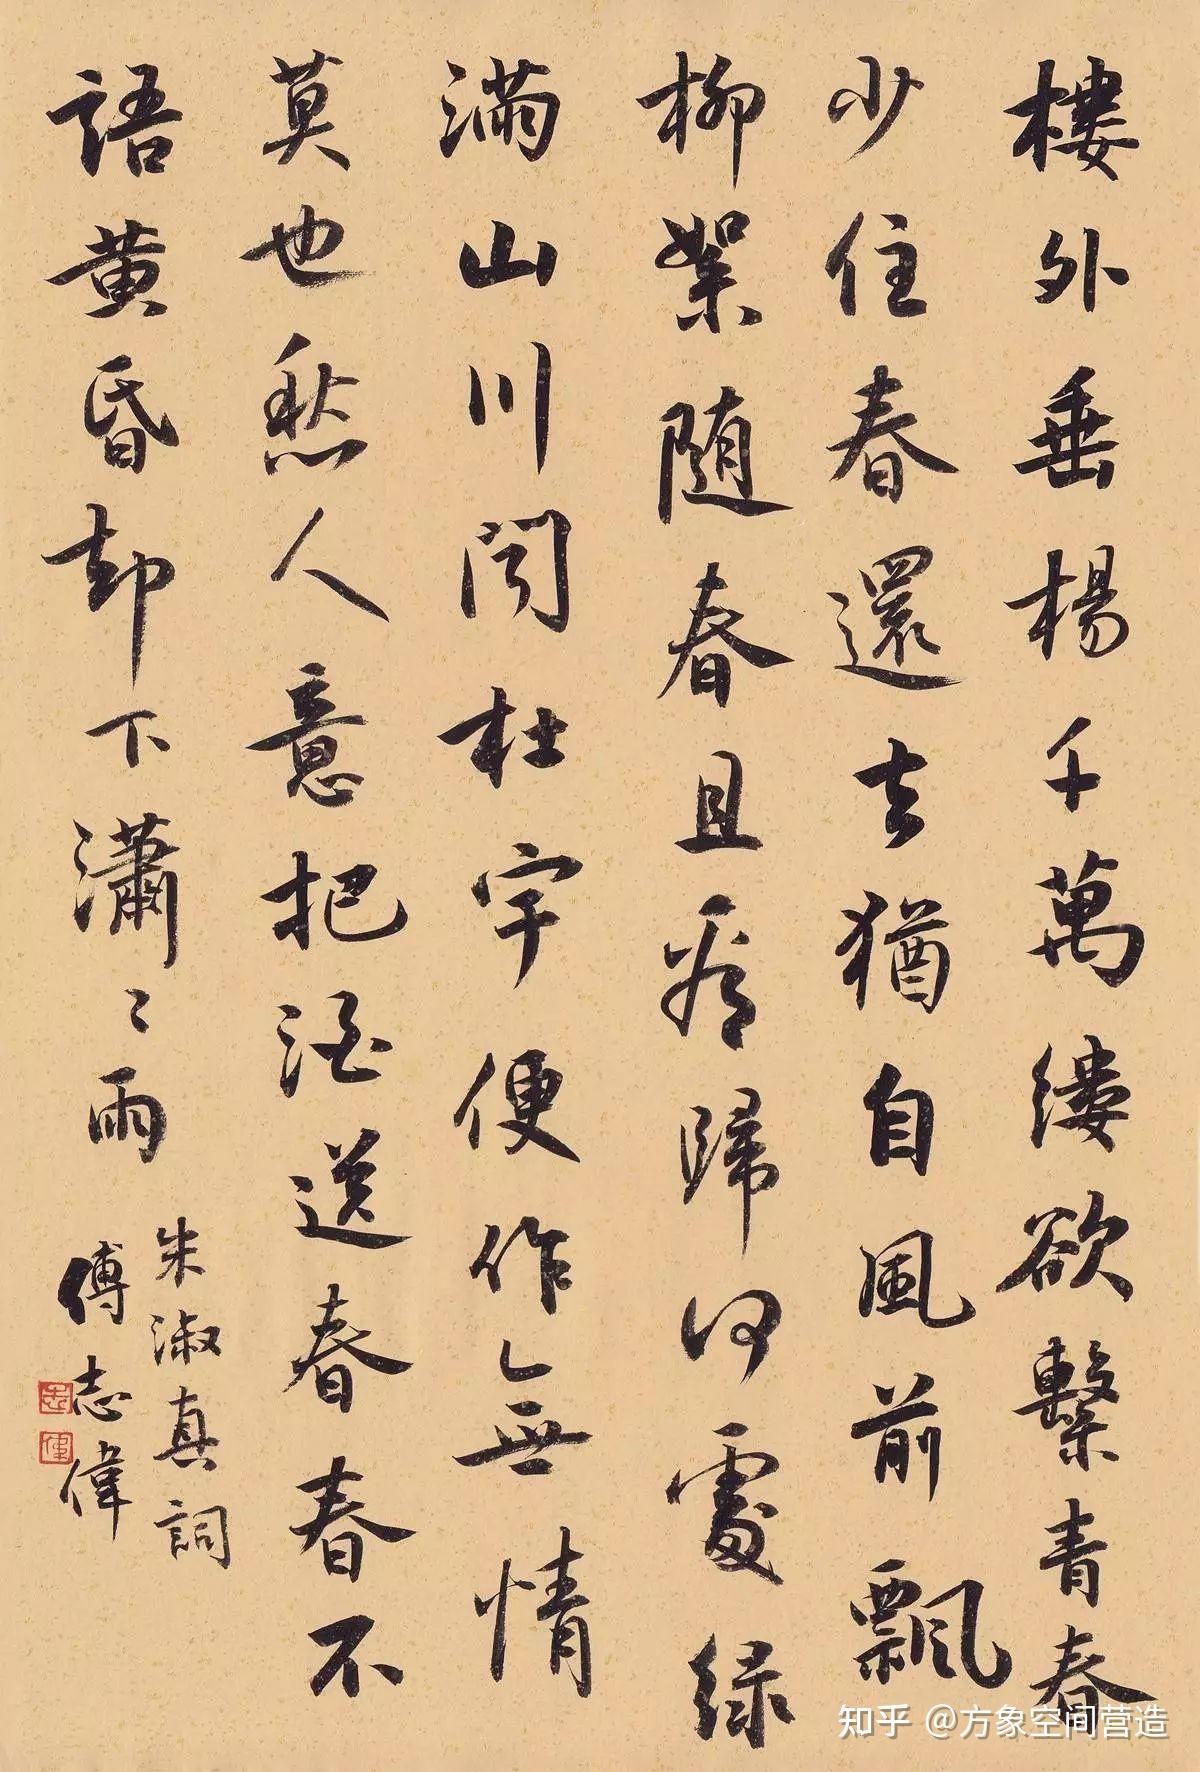 樓外垂楊千萬縷欲繫青春
少住春還去猶自風前飄
柳絮随春且看歸何處绿
滿山川闻杜宇便作無情
莫也愁人意把酒送春春不
語黄昏却下瀟〻雨
朱淑真詞
傅志偉
志
偉
知乎 @方象空间营造